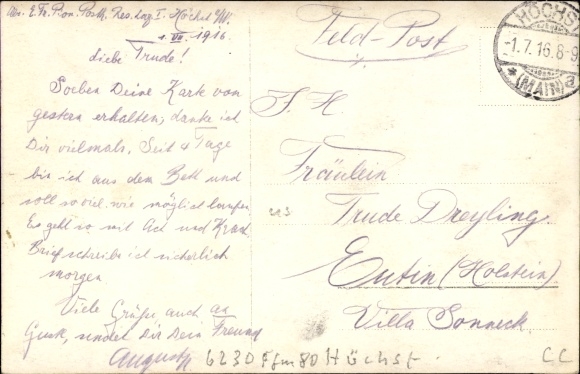 Res. Laz. I. Höchst a/M.
1. VII. 1916.
Liebe Trude!
Soeben Deine Karte von
gestern erhalten; danke ich
Dir vielmals. Seit 4 Tage
bin ich aus dem Bett und
soll so viel wie möglich laufen.
Es geht so mit Ach und Krach
Brief schreibe ich sicherlich
morgen
Viele Grüße, auch an
sendet Dir Dein Freund
August
Feld-Post
HÖCHST
-1.7.16.8-9
(MAIN) a
S. H.
Fräulein
Trude Dreyling.
Eutin (Holstein)
Villa Sonneck.
6230 Ffm 80 Höchst.
CC